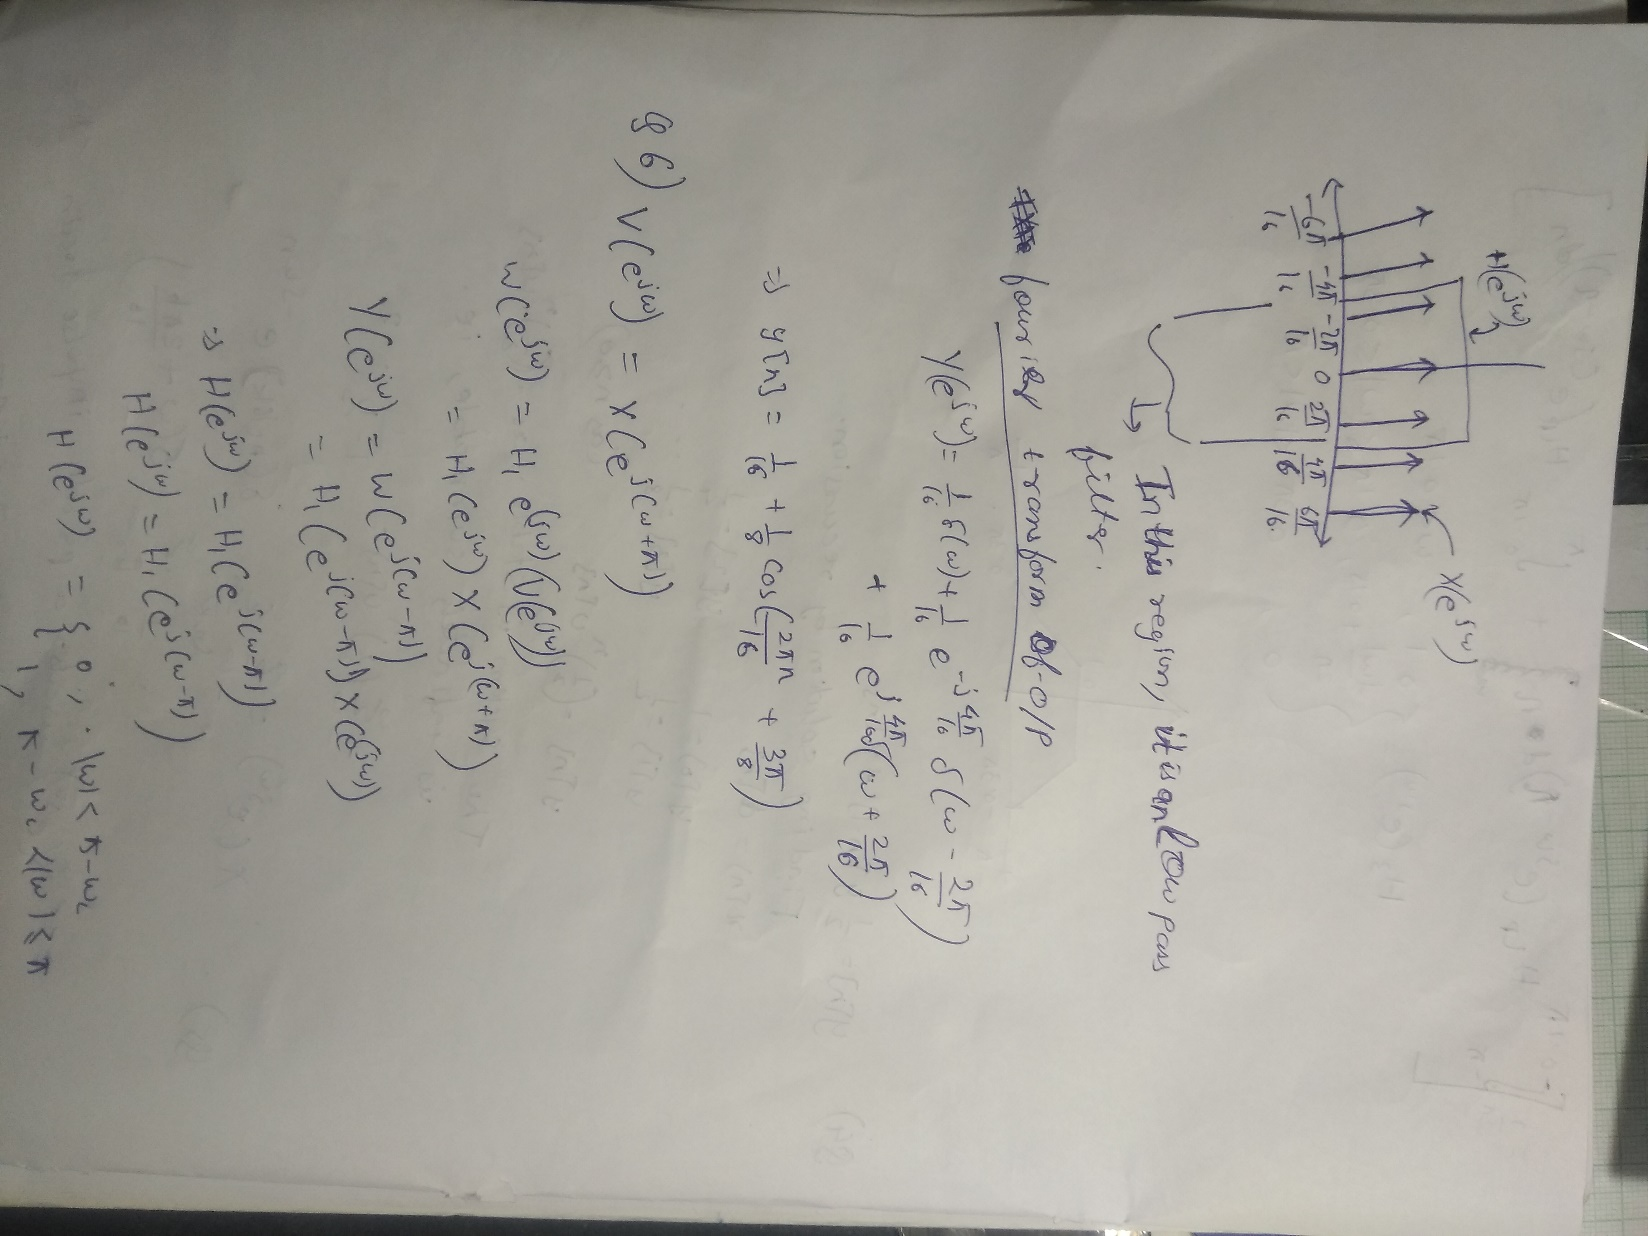 H(e^jω)
X(e^jω)
-6π/16 -4π/16 -2π/16 0 2π/16 4π/16 6π/16
↳ In this region, it is an low pass
filter.
fourier transform of O/P
Y(e^jω) = 1/16 δ(ω) + 1/16 e^-j4π/16 δ(ω - 2π/16)
+ 1/16 e^j4π/16 (ω + 2π/16)
⇒ y[n] = 1/16 + 1/8 cos(2πn/16 + 3π/8)
86) V(e^jω) = X(e^j(ω+π))
W(e^jω) = H₁ e^(jω) (V(e^jω))
= H₁(e^jω) X(e^j(ω+π))
Y(e^jω) = W(e^j(ω-π))
= H₁(e^j(ω-π)) X(e^jω)
⇒ H(e^jω) = H₁(e^j(ω-π))
H(e^jω) = H₁(e^j(ω-π))
H(e^jω) = { 0, |ω| < π-ωc
1, π-ωc < |ω| ≤ π